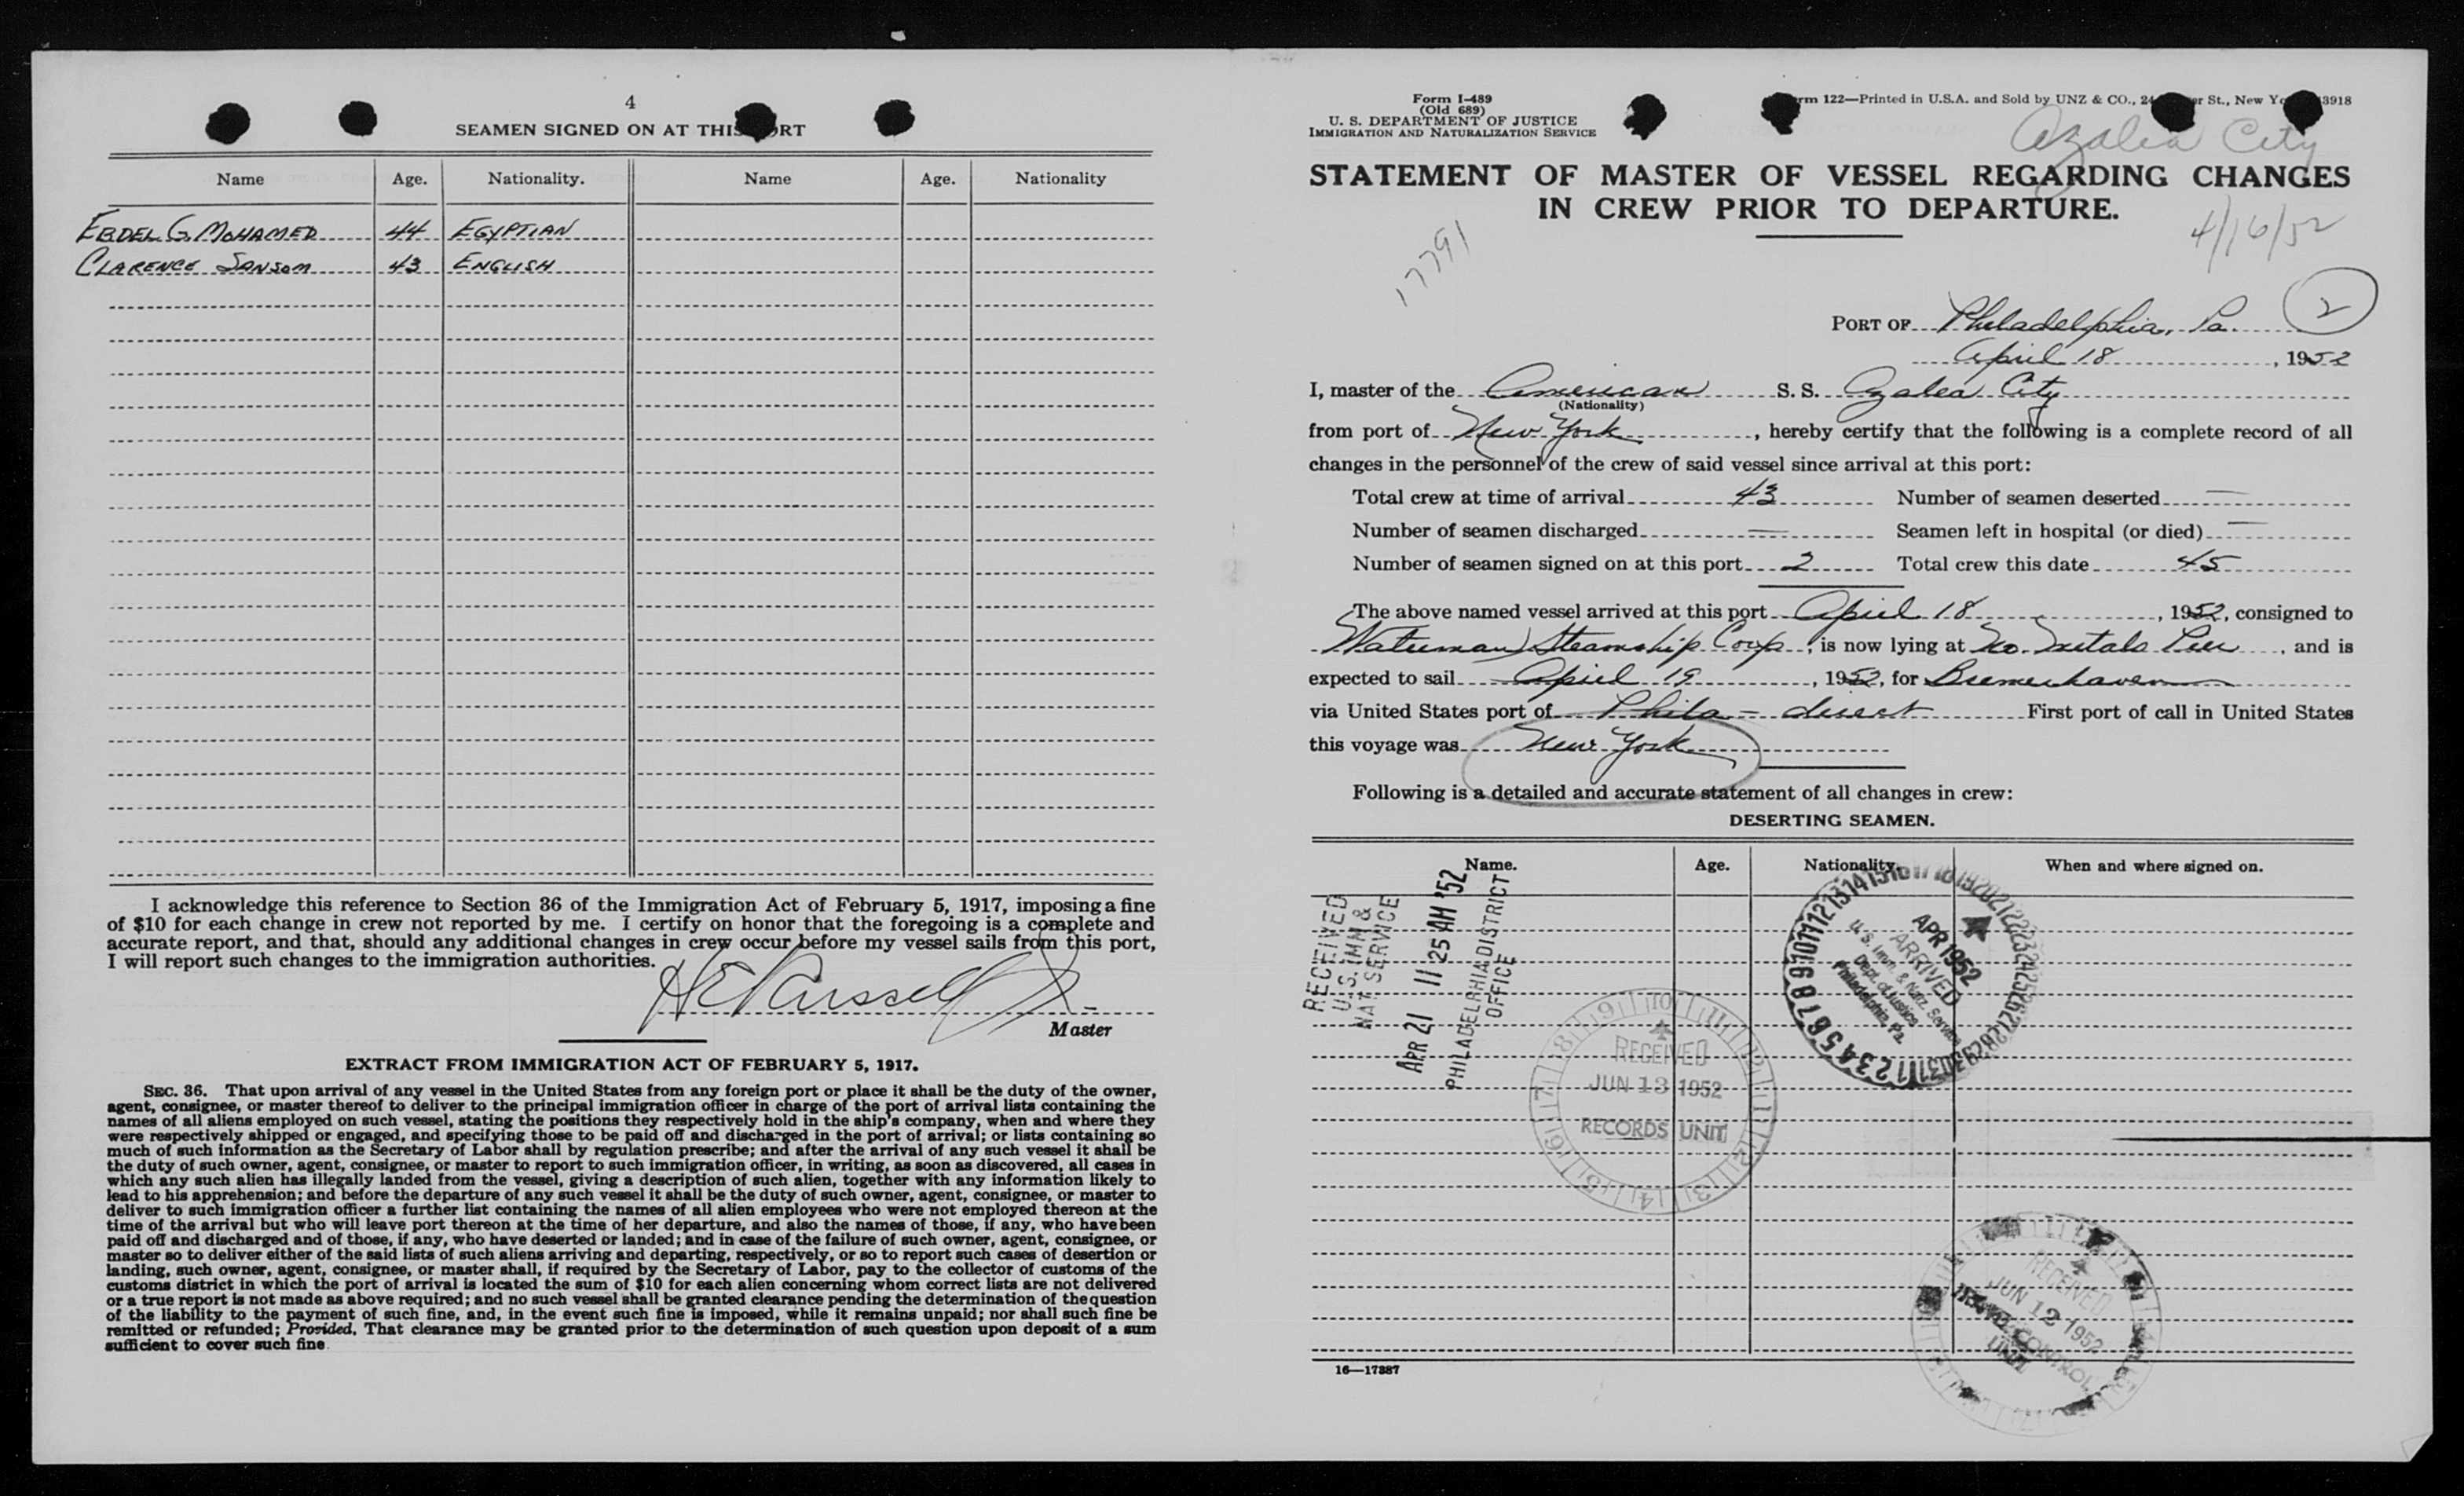 4
SEAMEN SIGNED ON AT THIS PORT
Name Age. Nationality. Name Age. Nationality
EBDEL G. MOHAMED 44 EGYPTIAN
CLARENCE SANSOM 43 ENGLISH
I acknowledge this reference to Section 36 of the Immigration Act of February 5, 1917, imposing a fine
of $10 for each change in crew not reported by me. I certify on honor that the foregoing is a complete and
accurate report, and that, should any additional changes in crew occur before my vessel sails from this port,
I will report such changes to the immigration authorities.
Master
EXTRACT FROM IMMIGRATION ACT OF FEBRUARY 5, 1917.
SEC. 36. That upon arrival of any vessel in the United States from any foreign port or place it shall be the duty of the owner,
agent, consignee, or master thereof to deliver to the principal immigration officer in charge of the port of arrival lists containing the
names of all aliens employed on such vessel, stating the positions they respectively hold in the ship's company, when and where they
were respectively shipped or engaged, and specifying those to be paid off and discharged in the port of arrival; or lists containing so
much of such information as the Secretary of Labor shall by regulation prescribe; and after the arrival of any such vessel it shall be
the duty of such owner, agent, consignee, or master to report to such immigration officer, in writing, as soon as discovered, all cases in
which any such alien has illegally landed from the vessel, giving a description of such alien, together with any information likely to
lead to his apprehension; and before the departure of any such vessel it shall be the duty of such owner, agent, consignee, or master to
deliver to such immigration officer a further list containing the names of all alien employees who were not employed thereon at the
time of the arrival but who will leave port thereon at the time of her departure, and also the names of those, if any, who have been
paid off and discharged and of those, if any, who have deserted or landed; and in case of the failure of such owner, agent, consignee, or
master so to deliver either of the said lists of such aliens arriving and departing, respectively, or so to report such cases of desertion or
landing, such owner, agent, consignee, or master shall, if required by the Secretary of Labor, pay to the collector of customs of the
customs district in which the port of arrival is located the sum of $10 for each alien concerning whom correct lists are not delivered
or a true report is not made as above required; and no such vessel shall be granted clearance pending the determination of the question
of the liability to the payment of such fine, and, in the event such fine is imposed, while it remains unpaid; nor shall such fine be
remitted or refunded; Provided, That clearance may be granted prior to the determination of such question upon deposit of a sum
sufficient to cover such fine
Form I-489
(Old 689)
U. S. DEPARTMENT OF JUSTICE
IMMIGRATION AND NATURALIZATION SERVICE
122—Printed in U.S.A. and Sold by UNZ & CO., St., New 3918
Azalea City
STATEMENT OF MASTER OF VESSEL REGARDING CHANGES
IN CREW PRIOR TO DEPARTURE.
4/16/52
17791
2
PORT OF Philadelphia, Pa.
April 18, 1952
I, master of the American S. S. Azalea City
(Nationality)
from port of New York, hereby certify that the following is a complete record of all
changes in the personnel of the crew of said vessel since arrival at this port:
Total crew at time of arrival 43 Number of seamen deserted —
Number of seamen discharged — Seamen left in hospital (or died) —
Number of seamen signed on at this port 2 Total crew this date 45
The above named vessel arrived at this port April 18, 1952, consigned to
Waterman Steamship Corp, is now lying at No. Metals Pier, and is
expected to sail April 19, 1952, for Bremerhaven
via United States port of Phila - direct First port of call in United States
this voyage was New York
Following is a detailed and accurate statement of all changes in crew:
DESERTING SEAMEN.
Name. Age. Nationality. When and where signed on.
RECEIVED
U.S. IMM &
NAT SERVICE
APR 21 11 25 AM '52
PHILADELPHIA DISTRICT
OFFICE
APR 1952
ARRIVED
U.S. Imm. & Natz. Service
Dept. of Justice
Philadelphia, Pa.
RECEIVED
JUN 13 1952
RECORDS UNIT
RECEIVED
JUN 12 1952
CONTROL
UNIT
16—17387